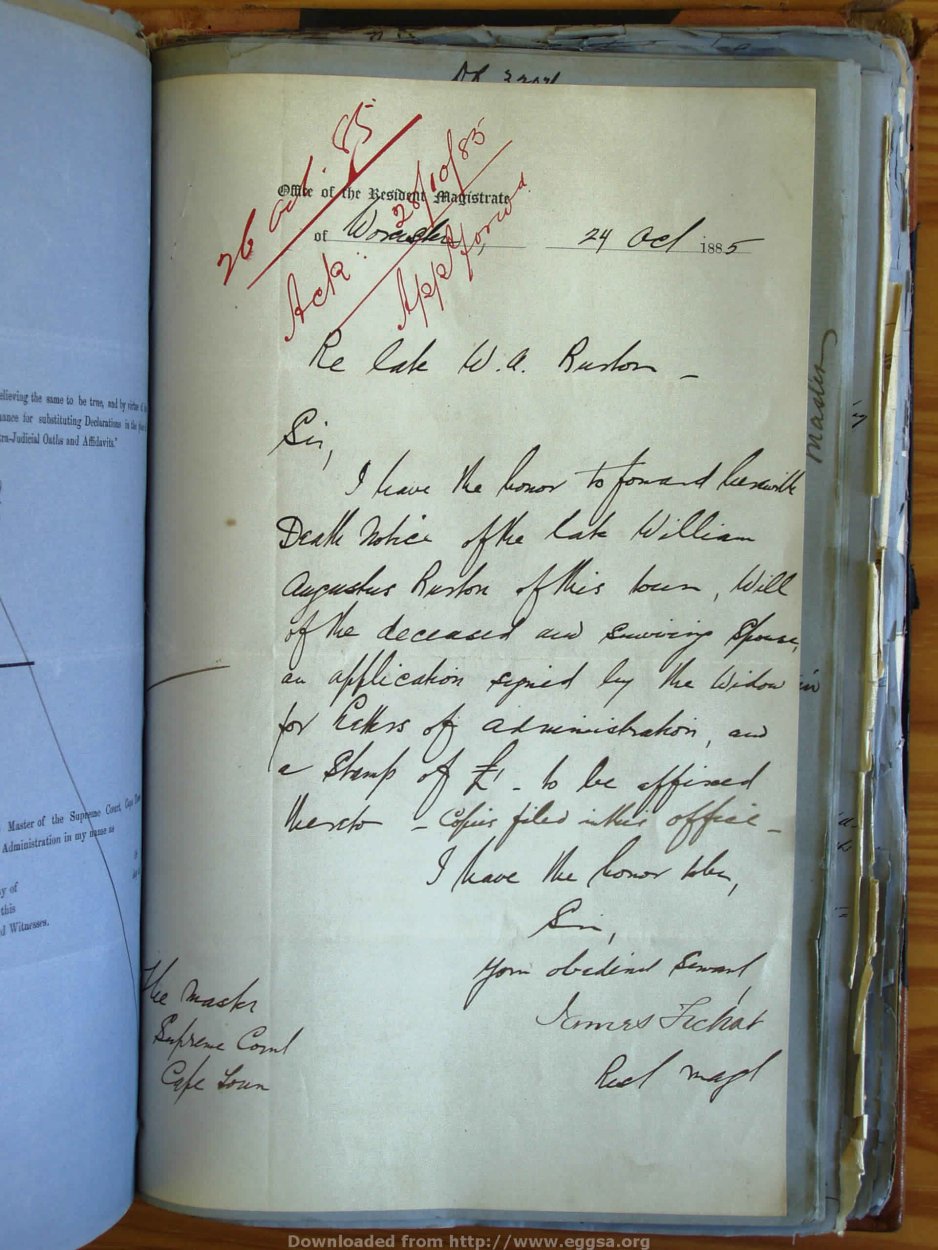 26 Oct. 85
Ack: 28/10/85
Appl forwd.
Office of the Resident Magistrate
of Worcester, 24 Oct 1885
Re late W. A. Ruston —
Sir,
I have the honor to forward herewith
Death Notice of the late William
Augustus Ruston of this town, Will
of the deceased and surviving Spouse,
an application signed by the Widow
for Letters of administration, and
a Stamp of £1 - to be affixed
thereto - Copies filed in this office -
I have the honor to be,
Sir,
Your obedient Servant,
James Fichat
Resd Magt
The Master
Supreme Court
Cape Town
Master
elieving the same to be true, and by virtue of
nance for substituting Declarations in the
tra-Judicial Oaths and Affidavits."
Master of the Supreme Court, Cape Town
Administration in my name as
y of
this
d Witnesses.
Downloaded from http://www.eggsa.org